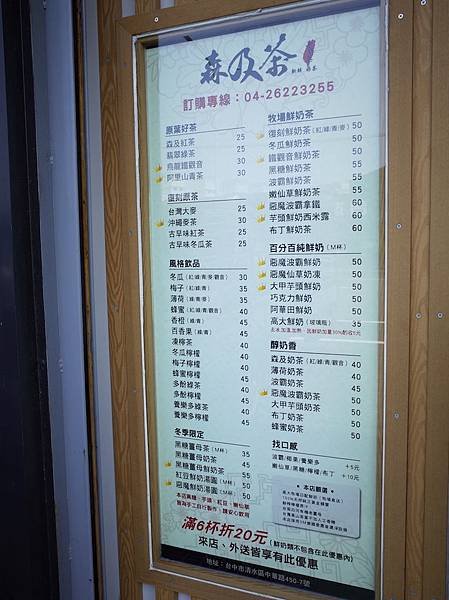 森及茶
訂購專線：04-26223255
原葉好茶
森及紅茶 25
翡翠綠茶 25
烏龍鐵觀音 30
阿里山青茶 30
復刻憙茶
台灣大麥 25
沖繩麥茶 30
古早味紅茶 25
古早味冬瓜茶 25
風格飲品
冬瓜(紅/綠/青/麥/觀音) 30
梅子(紅/綠/青) 35
薄荷(綠/青/麥) 35
蜂蜜(紅/綠/青/觀音) 40
香橙(綠/青) 40
百香果(綠/青) 45
凍檸茶 40
冬瓜檸檬 40
梅子檸檬 40
蜂蜜檸檬 45
多酚綠茶 40
多酚檸檬 45
養樂多綠茶 40
養樂多檸檬 45
冬季限定
黑糖薑母茶(M杯) 35
黑糖薑母奶茶 45
黑糖薑母鮮奶茶 55
紅豆鮮奶湯圓(M杯) 50
惡魔鮮奶湯圓(M杯) 50
本店黑糖、芋頭、紅豆、嫩仙草
皆為手工自行製作，請安心飲用
牧場鮮奶茶
復刻鮮奶茶(紅/綠/青/麥) 50
冬瓜鮮奶茶 50
鐵觀音鮮奶茶 50
黑糖鮮奶茶 55
波霸鮮奶茶 55
嫩仙草鮮奶茶 55
惡魔波霸拿鐵 60
芋頭鮮奶西米露 60
布丁鮮奶茶 60
百分百純鮮奶(M杯)
惡魔波霸鮮奶 50
惡魔仙草奶凍 50
大甲芋頭鮮奶 50
巧克力鮮奶 50
阿華田鮮奶 50
高大鮮奶(玻璃瓶) 35
醇奶香
森及奶茶(紅/綠/青/觀音) 40
薄荷奶茶 40
波霸奶茶 45
惡魔波霸奶茶 50
大甲芋頭奶茶 50
布丁奶茶 50
蜂蜜奶茶 50
找口感
波霸/椰果/養樂多 +5元
嫩仙草/黑糖/檸檬/布丁 +10元
本店嚴選
滿6杯折20元(鮮奶類不包含在此優惠內)
來店、外送皆享有此優惠
地址：台中市清水區中華路450-7號